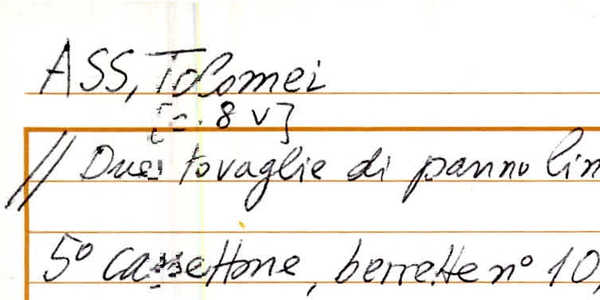 ASS, Tolomei
[c. 8 v]
// Due tovaglie di panno lin
5° cassettone, berrette n° 10,